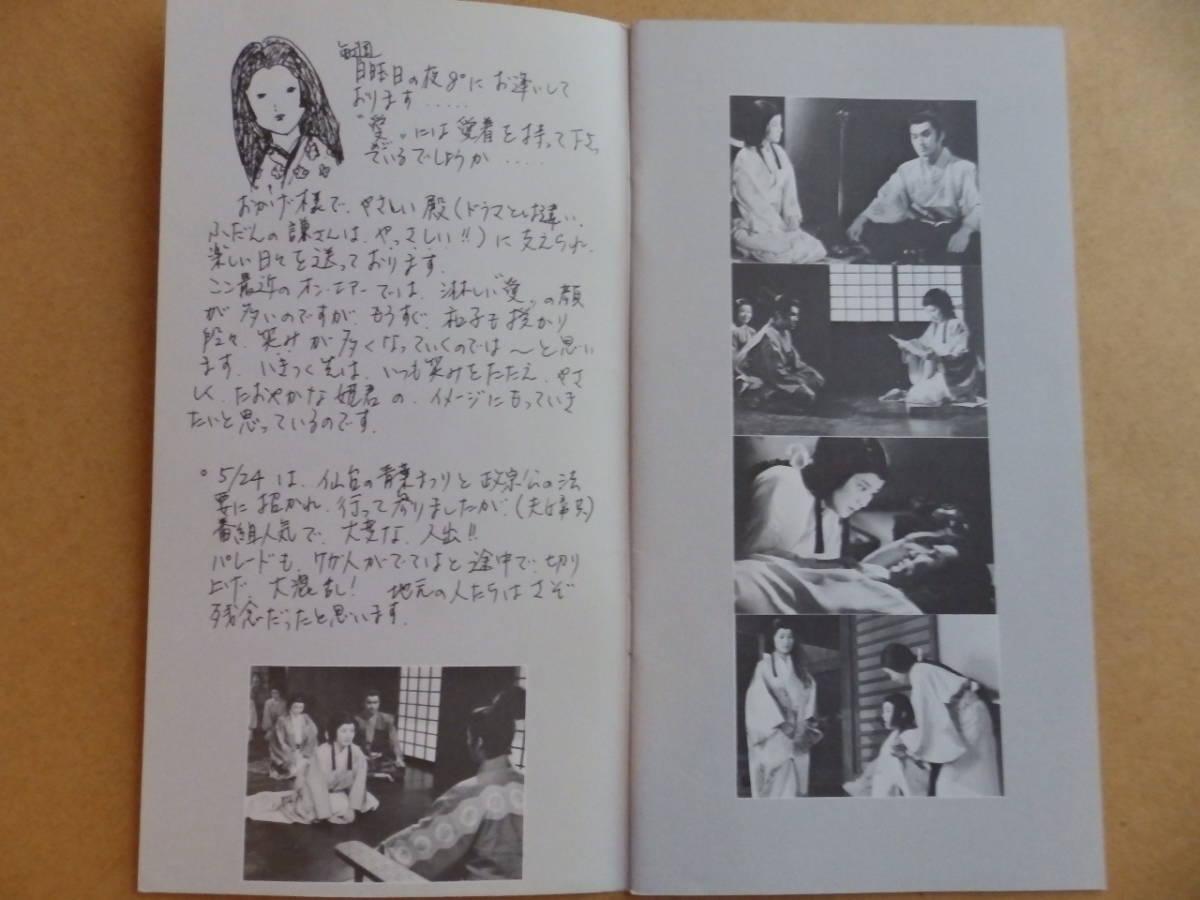 毎週
日曜日の夜8°にお逢いして
おります.....
"愛"には愛着を持って下さっ
ているでしょうか....
おかげ様で、やさしい殿(ドラマとは違い、
ふだんの謙さんは、やっさしい!!)に支えられ、
楽しい日々を送っております。
ここ最近のオン・エアーでは、淋しい"愛"の顔
が多いのですが、もうすぐ、和子も授かり
段々、笑みが多くなっていくのでは〜と思い
ます。いきつく先は、いつも笑みをたたえ、やさ
しく、たおやかな姫君の、イメージにもっていき
たいと思っているのです。
○5/24は、仙台の青葉まつりと政宗公の法
要に招かれ、行って参りましたが、(夫婦共)
番組人気で、大変な、人出!!
パレードも、ケガ人がでてはと途中で、切り
上げ、大混乱! 地元の人たちはさぞ
残念だったと思います。